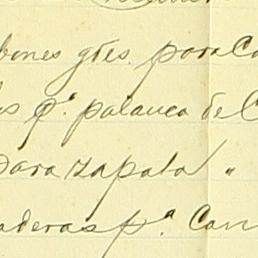 bones gdes. para Ca
os pª. palanca de C
Para zapata "
aderas pª. Can